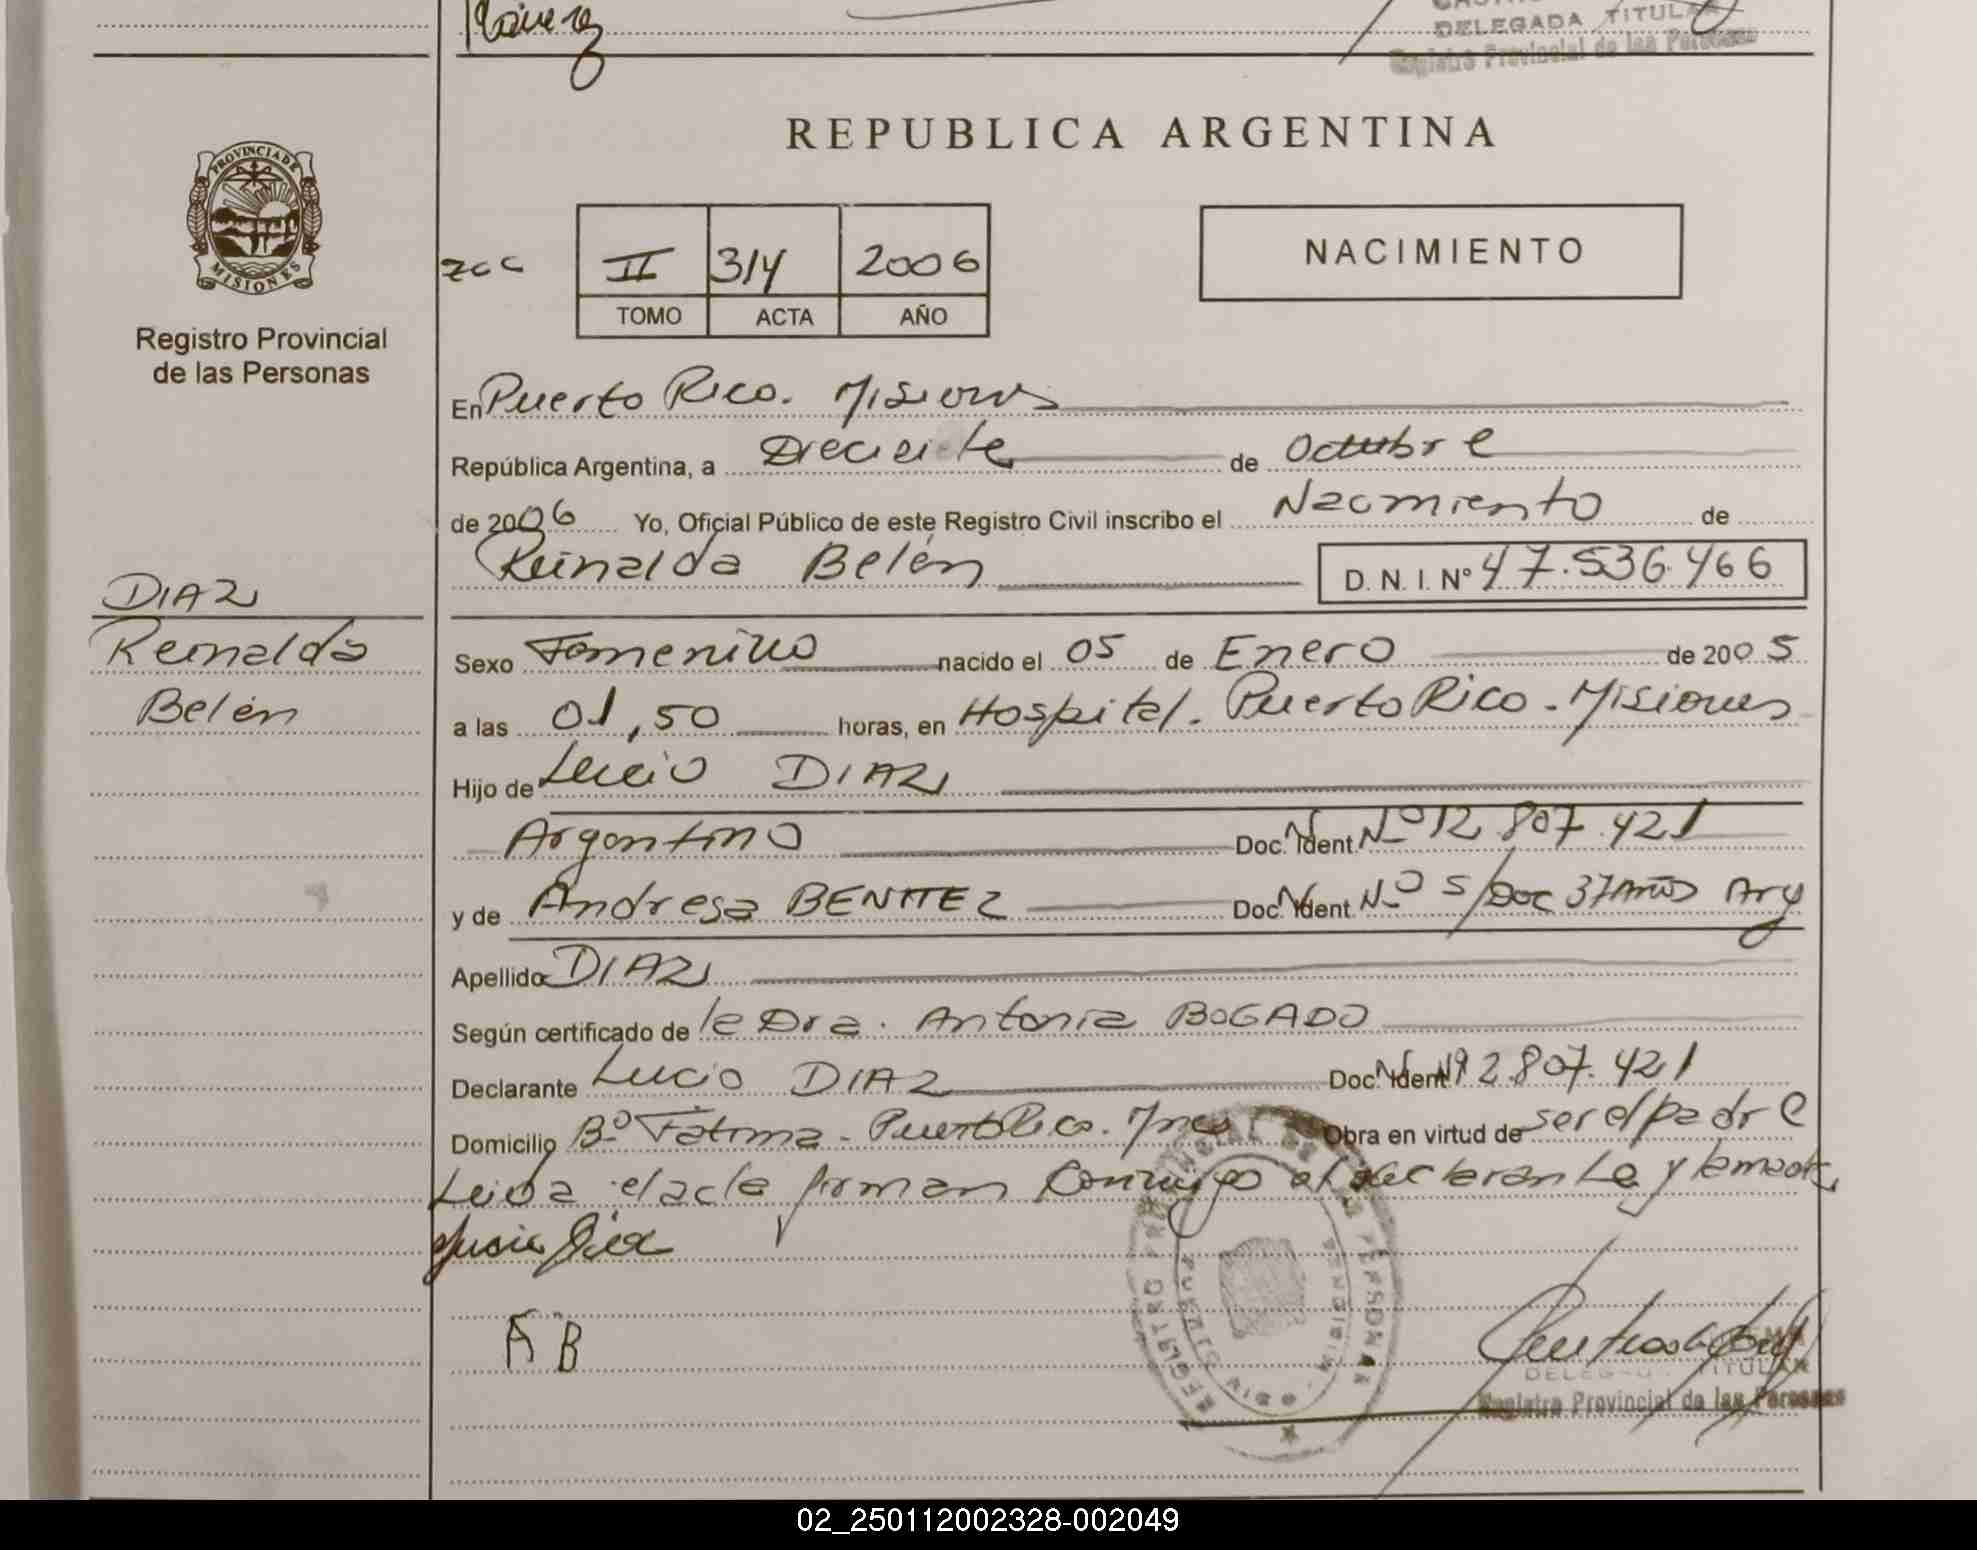 Ramirez
DELEGADA TITULAR
Registro Provincial de las Personas
REPUBLICA ARGENTINA
PROVINCIA DE
MISIONES
Registro Provincial
de las Personas
II 314 2006
TOMO ACTA AÑO
NACIMIENTO
En Puerto Rico. Misiones
República Argentina, a Dieciseite de Octubre
de 2006 Yo, Oficial Público de este Registro Civil inscribo el Nacimiento de
Reinalda Belén D. N. I. Nº 47.536.466
DIAZ
Reinalda
Belén
Sexo Femenino nacido el 05 de Enero de 2005
a las 01,50 horas, en Hospital. Puerto Rico. Misiones
Hijo de Lucio DIAZ
Argentino Doc. Ident. Nº 12.807.421
y de Andresa BENITEZ Doc. Ident. Nº S/Doc 37 AÑOS Arg
Apellido DIAZ
Según certificado de la Dra. Antonia BOGADO
Declarante Lucio DIAZ Doc. Ident. 12.807.421
Domicilio Bº Fátima. Puerto Rico. Mnes Obra en virtud de ser el padre
Leida el acta firman conmigo el declarante y la madre
AB
REGISTRO PROVINCIAL DE LAS PERSONAS
TITULAR
Registro Provincial de las Personas
02_250112002328-002049